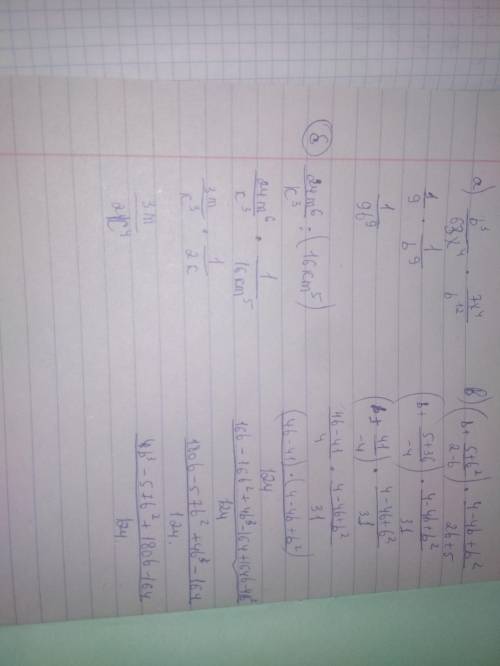 a) b³/63x⁴ · 7x⁴/b¹²
1/9 · 1/b⁹
1/9b⁹
б) 24m⁶/k³ : (16km⁵)
24m⁶/k³ · 1/16km⁵
3m/k³ · 1/2k
3m/2k⁴
в) (b + 5+b²/2-b) · 4-4b+b²/2b+5
(b + 5+36/-4) · 4-4b+b²/31
(b + 41/-4) · 4-4b+b²/31
4b-41/4 · 4-4b+b²/31
(4b-41)·(4-4b+b²)/124
16b-16b²+4b³-164+164b-41b²/124
180b-57b²+4b³-164/124.
4b³-57b²+180b-164/124.